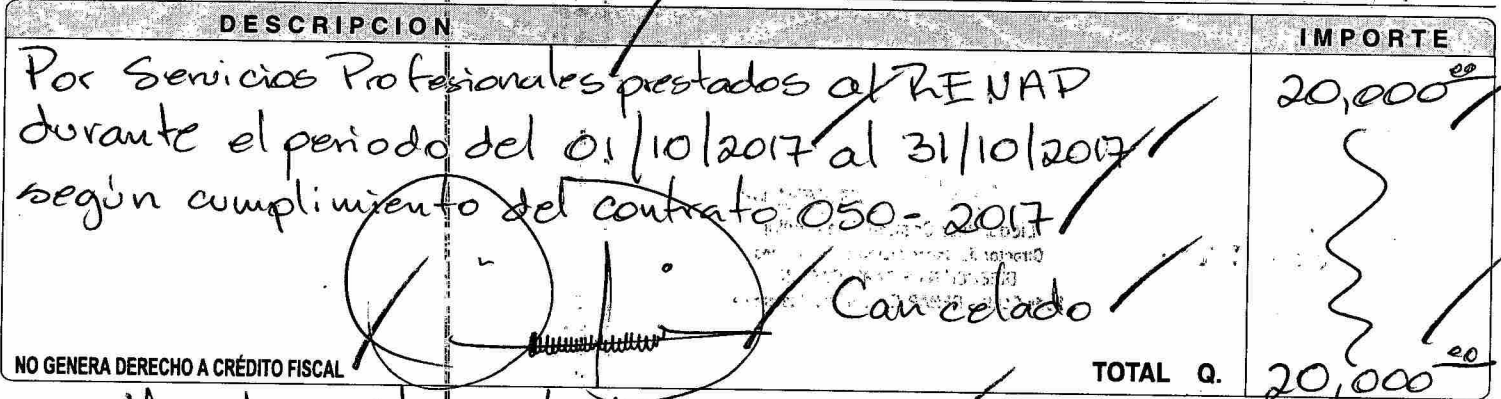 DESCRIPCION IMPORTE
Por Servicios Profesionales prestados al RENAP 20,000 00
durante el periodo del 01/10/2017 al 31/10/2017
según cumplimiento del contrato 050-2017
Cancelado
NO GENERA DERECHO A CRÉDITO FISCAL TOTAL Q. 20,000 00